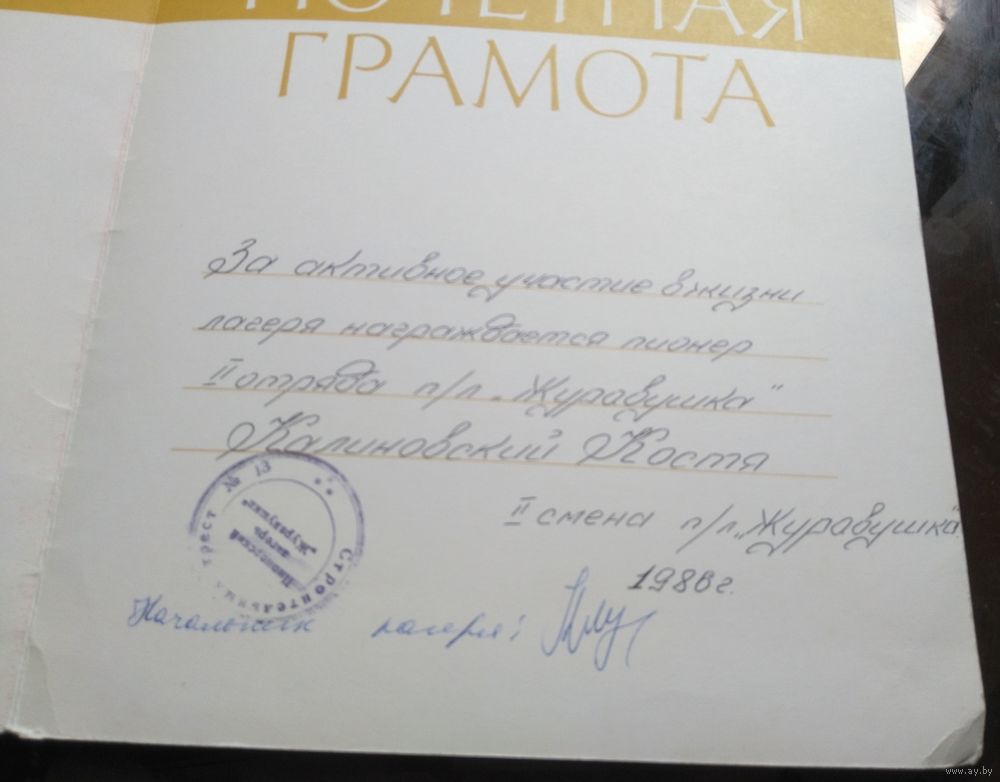 ПОЧЕТНАЯ
ГРАМОТА
За активное участие в жизни
лагеря награждается пионер
II отряда п/л "Журавушка"
Калиновский Костя
II смена п/л "Журавушка"
1986 г.
Строительный трест № 13
Пионерский
лагерь
"Журавушка"
Начальник лагеря:
www.ay.by